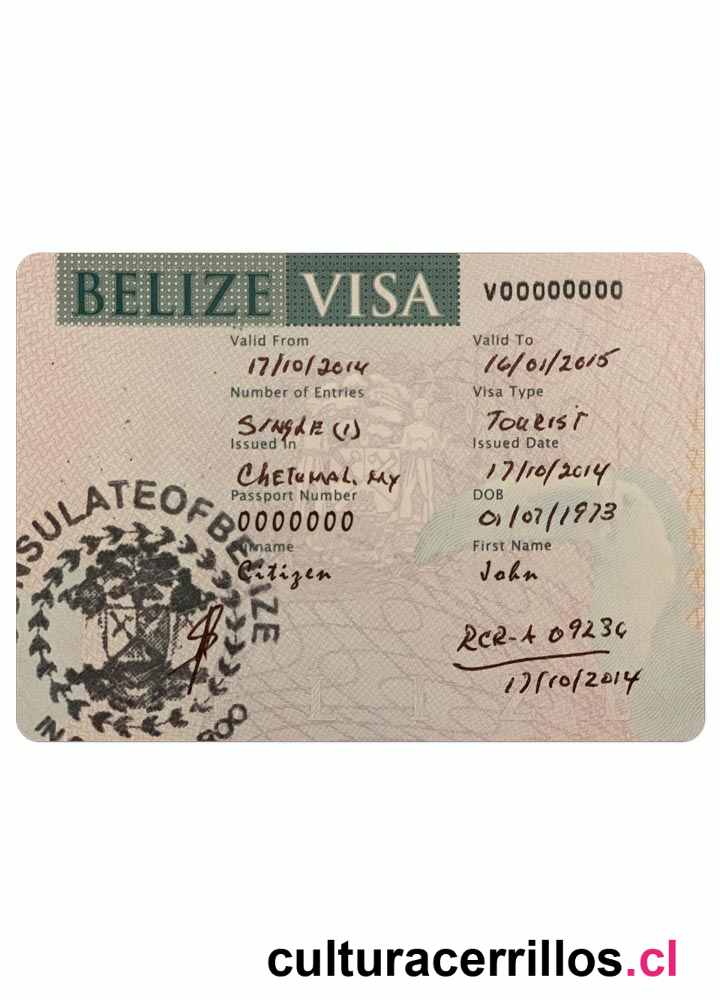 BELIZE VISA
V00000000
Valid From
17/10/2014
Valid To
16/01/2015
Number of Entries
SINGLE (1)
Visa Type
TOURIST
Issued In
CHETUMAL, MX
Issued Date
17/10/2014
Passport Number
0000000
DOB
01/07/1973
Citizen
First Name
John
RCR-A 09234
17/10/2014
NSULATE OF BELIZE
culturacerrillos.cl